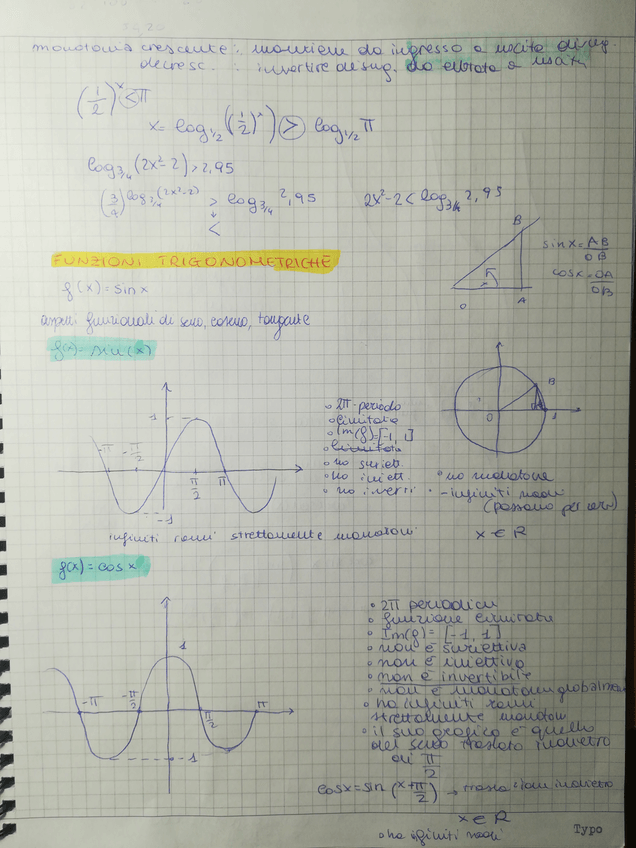 monotonia crescente: mantiene da ingresso a uscita diseg.
decresc. : invertire diseg. da entrata a uscita
(1/2)^x ≤ π
x = log_{1/2} ((1/2)^x) ≥ log_{1/2} π
log_{3/4} (2x²-2) > 2,95
(3/4)^{log_{3/4}(2x²-2)} > log_{3/4} 2,95    2x²-2 < log_{3/4} 2,95
<
FUNZIONI TRIGONOMETRICHE
f(x) = sin x
B
O
A
sin x = AB/OB
cos x = OA/OB
funzionali di seno, coseno, tangente
f(x) = sin(x)
1
-π
-π/2
π/2
π
-1
• 2π-periodo
• limitata
• Im(f)=[-1, 1]
• limitata
• no suriett.
• no iniett.
• no inverti.
B
O
1
• no monotona
• -infiniti
(passano per
infiniti rami strettamente monotoni
x ∈ R
f(x) = cos x
1
-π
-π/2
π/2
π
-1
• 2π periodica
• funzione limitata
• Im(f) = [-1, 1]
• non è suriettiva
• non è iniettiva
• non è invertibile
• non è monotona globalmente
• ha infiniti rami
strettamente monotoni
• il suo grafico è quello
del seno traslato indietro
di π/2
cos x = sin (x+π/2) → traslazione indietro
x ∈ R
• ha infiniti
Typo